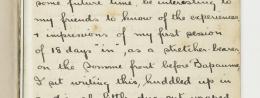 some future time, be interesting to
my friends to know of the experiences
& impressions of my first session
of 18 days "in", as a stretcher bearer
on the Somme front before Bapaume.
I am writing this, huddled up in
a little dug out